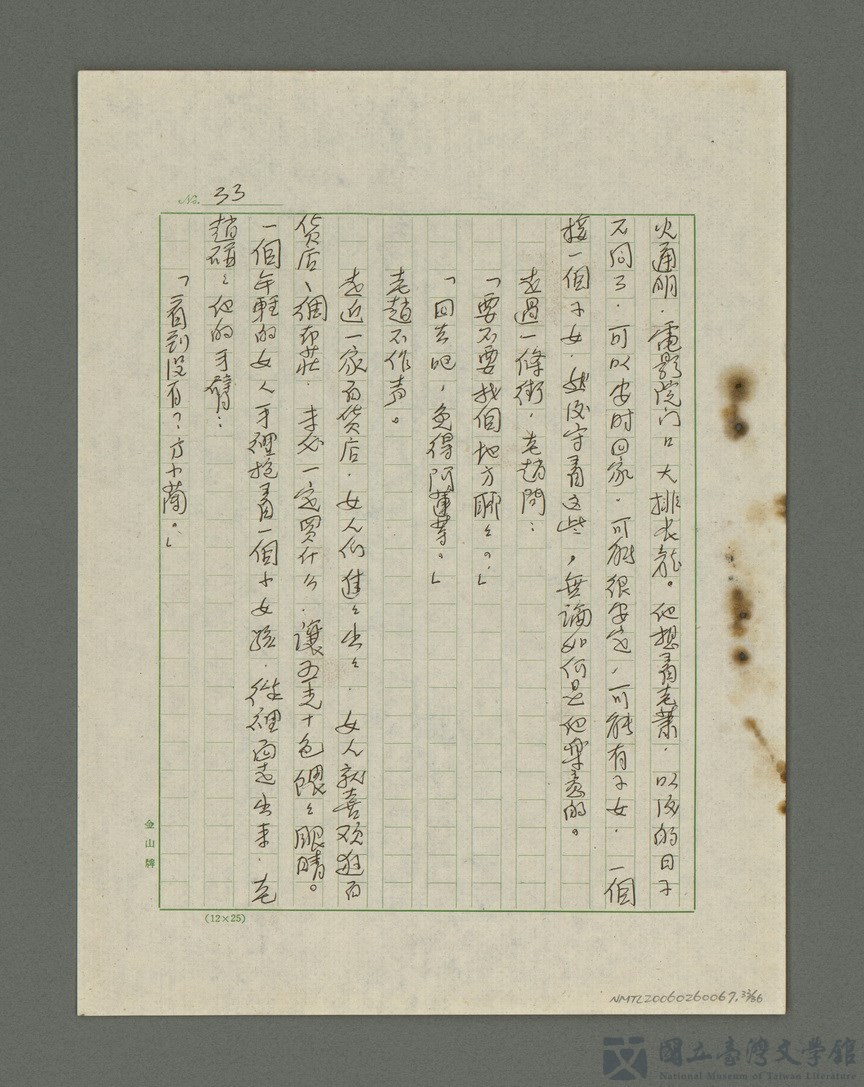 No. 33
火通明，電影院門口大排長龍。他想着老葉，以後的日子
不同了，可以按时回家，可能很安定，可能有子女，一個
接一個子女，然後守着这些，無論如何是他樂意的。
走過一條街，老趙問：
「要不要找個地方聊々。」
「回去吧，免得阿蓮等。」
老趙不作声。
走近一家百貨店，女人們進々出々，女人就喜欢逛百
貨店、綢布莊，未必一定買什么，讓五光十色餵々眼睛。
一個年輕的女人手裡抱着一個小女孩，從裡面走出來，老
趙碰々他的手臂：
「看到沒有？方小蘭。」
金山牌
(12×25)
NMTL20060260067,33/66
國立臺灣文學館
National Museum of Taiwan Literature